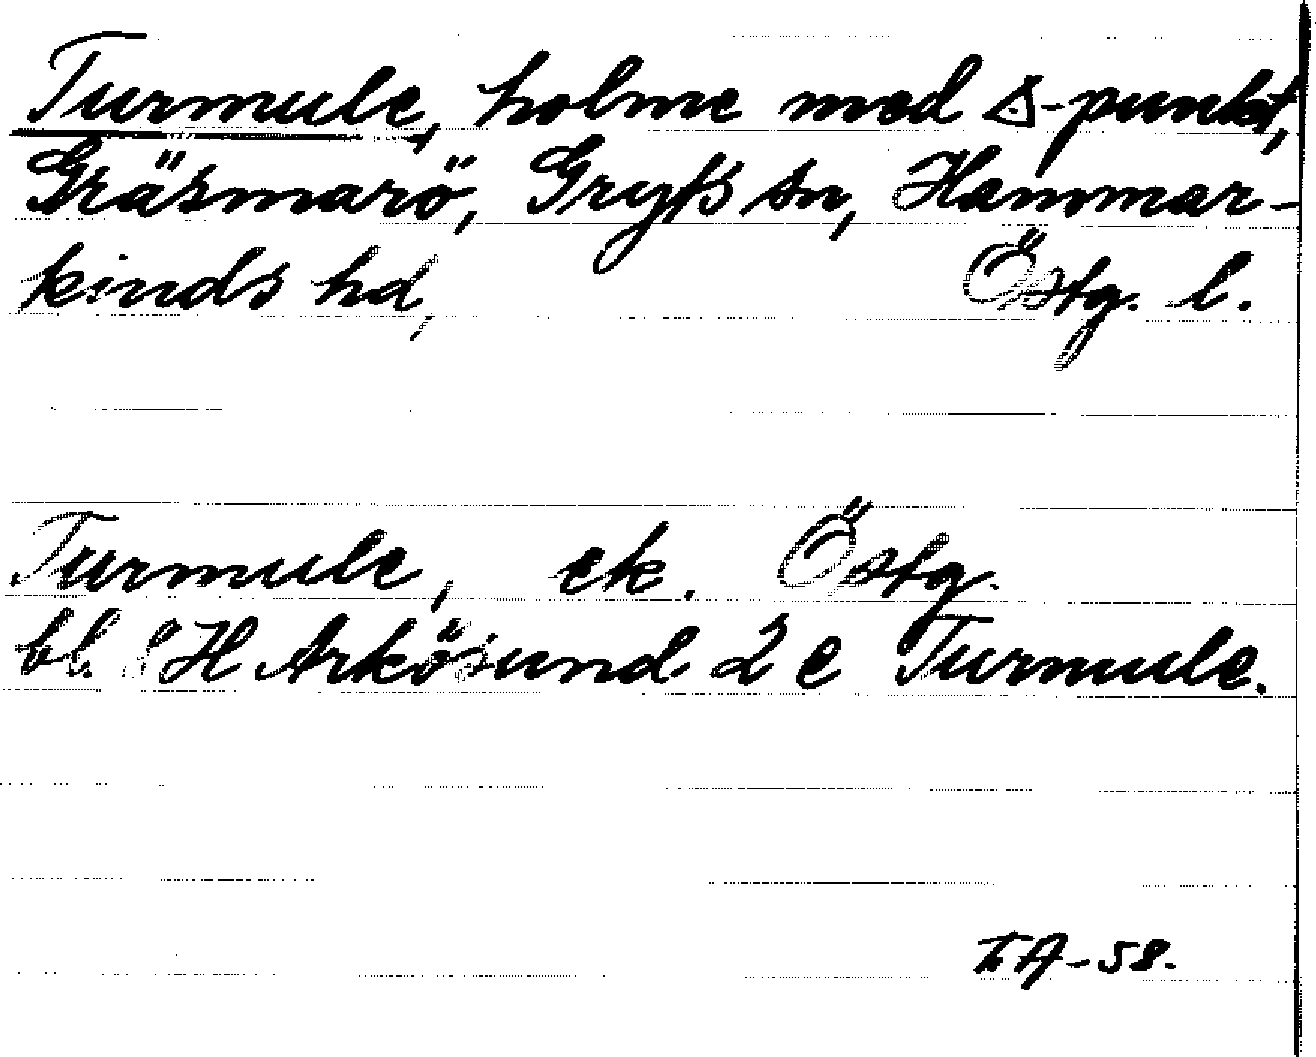 Turmule, holme med Δ-punkt,
Gräsmarö, Gryts sn, Hammar-
kinds hd, Östg. l.
Turmule, ek. Östg.
bl. 8H Arkösund 2 e Turmule.
TA-58.